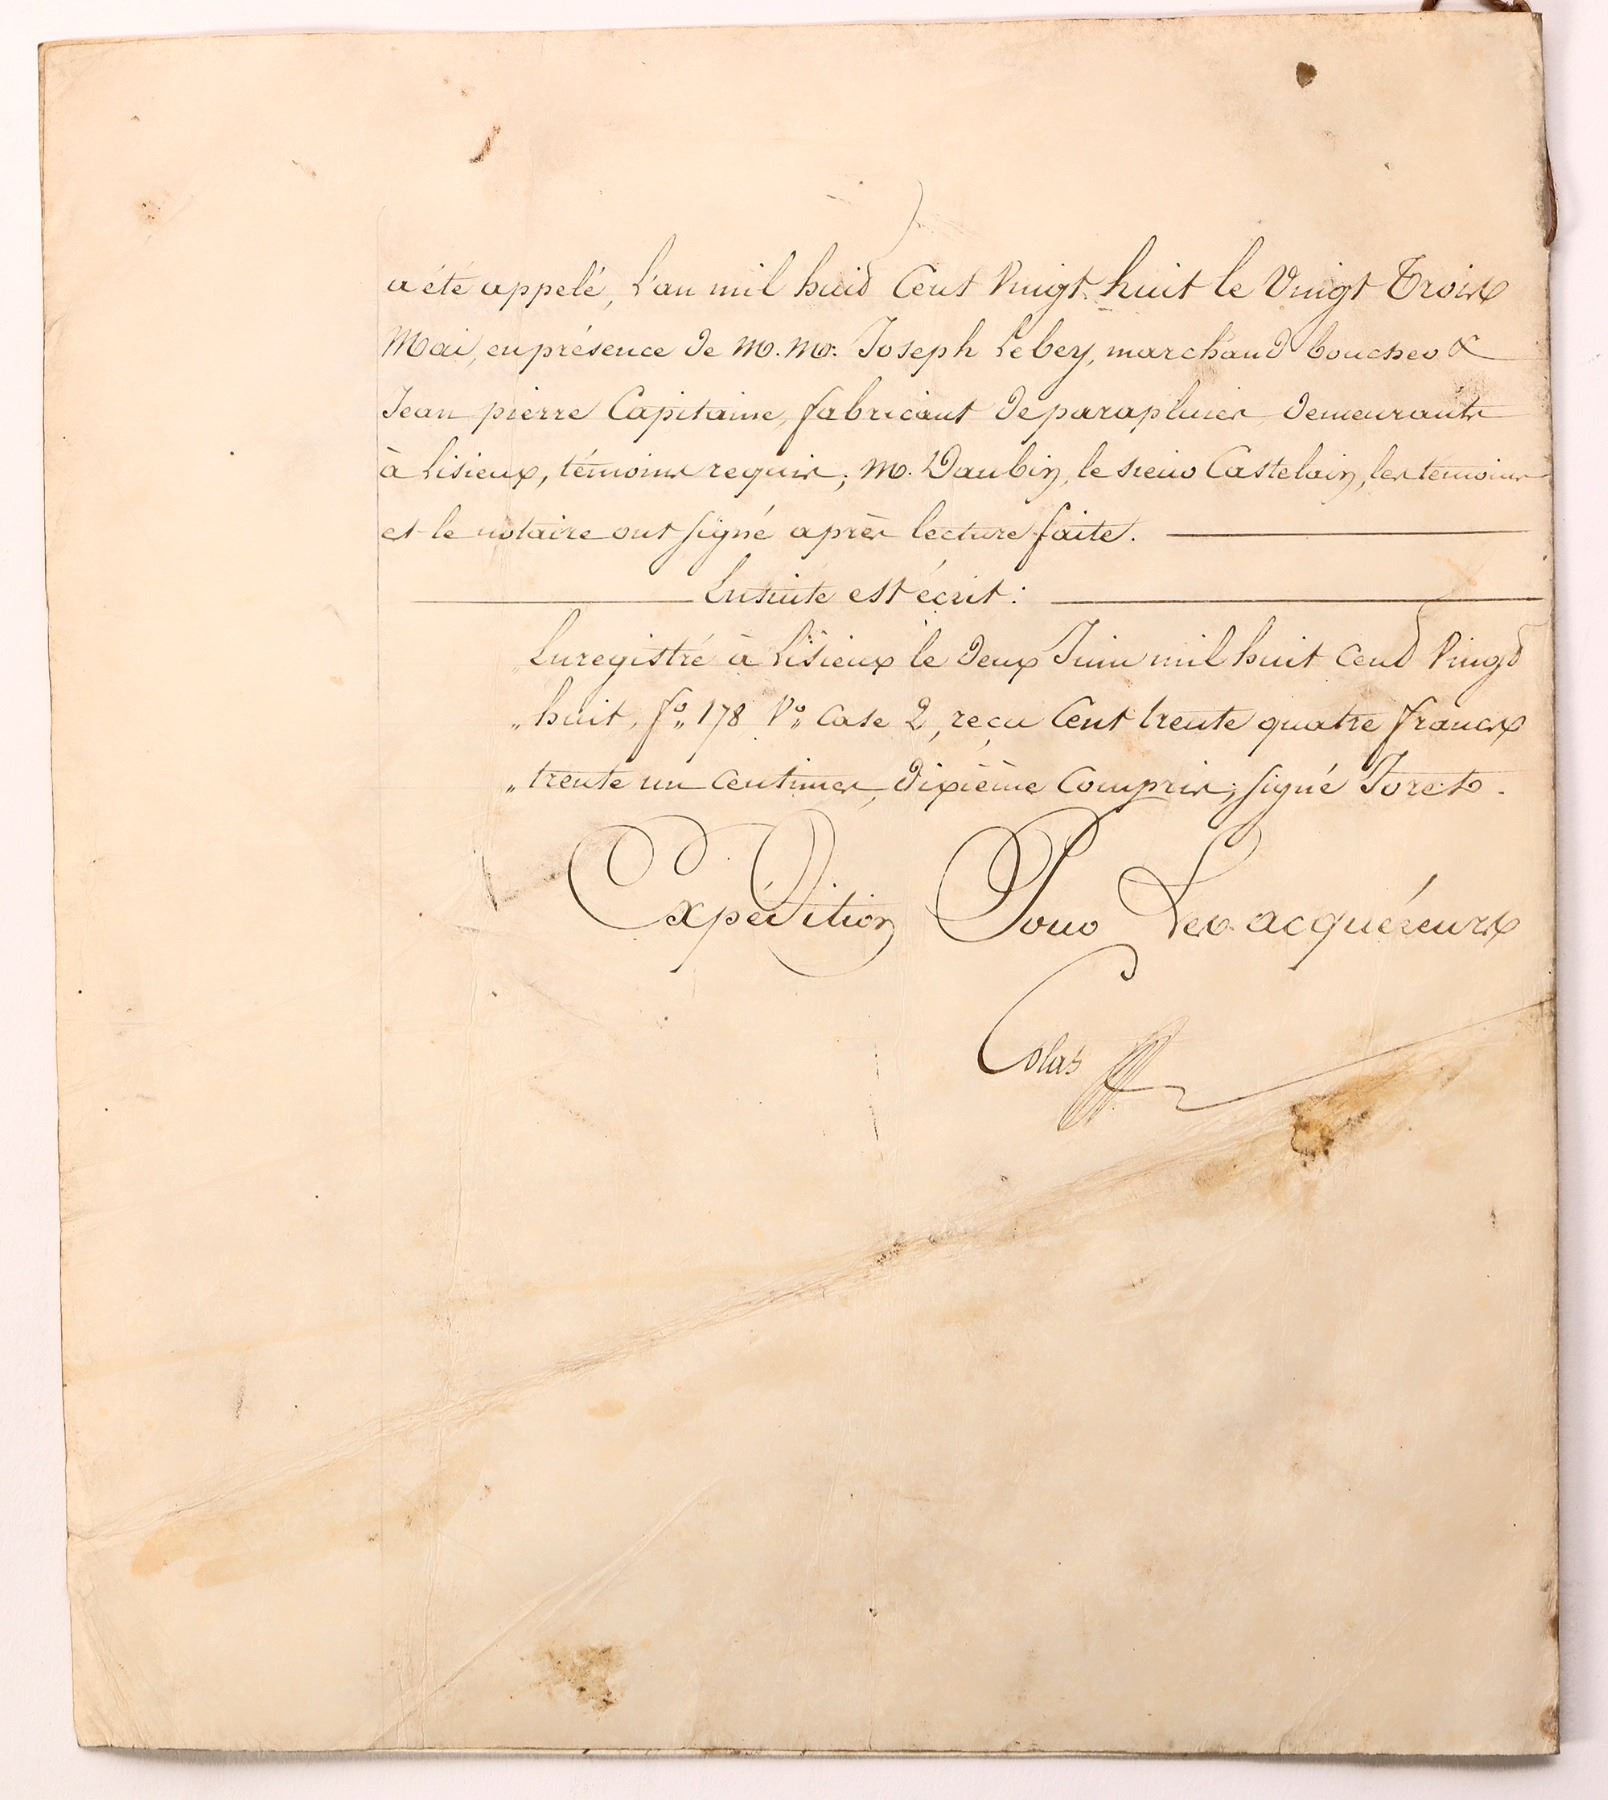 a été appelé, L'an mil huit Cent Vingt huit le Vingt Trois
Mai, en présence de M. Mrs. Joseph Lebey, marchand boucher &
Jean pierre Capitaine, fabricant de parapluies demeurants
à Lisieux, témoins requis; M. Daubin, le sieur Castelain, les témoins
et le notaire ont signé après lecture faite.
Ensuite est écrit:
Enregistré à Lisieux le deux Juin mil huit cent Vingt
" huit, fo. 178 Vo. Case 2, reçu Cent trente quatre francs
" trente un centimes, dixième Compris, signé Foret.
Expédition Pour Les acquéreurs
Colas